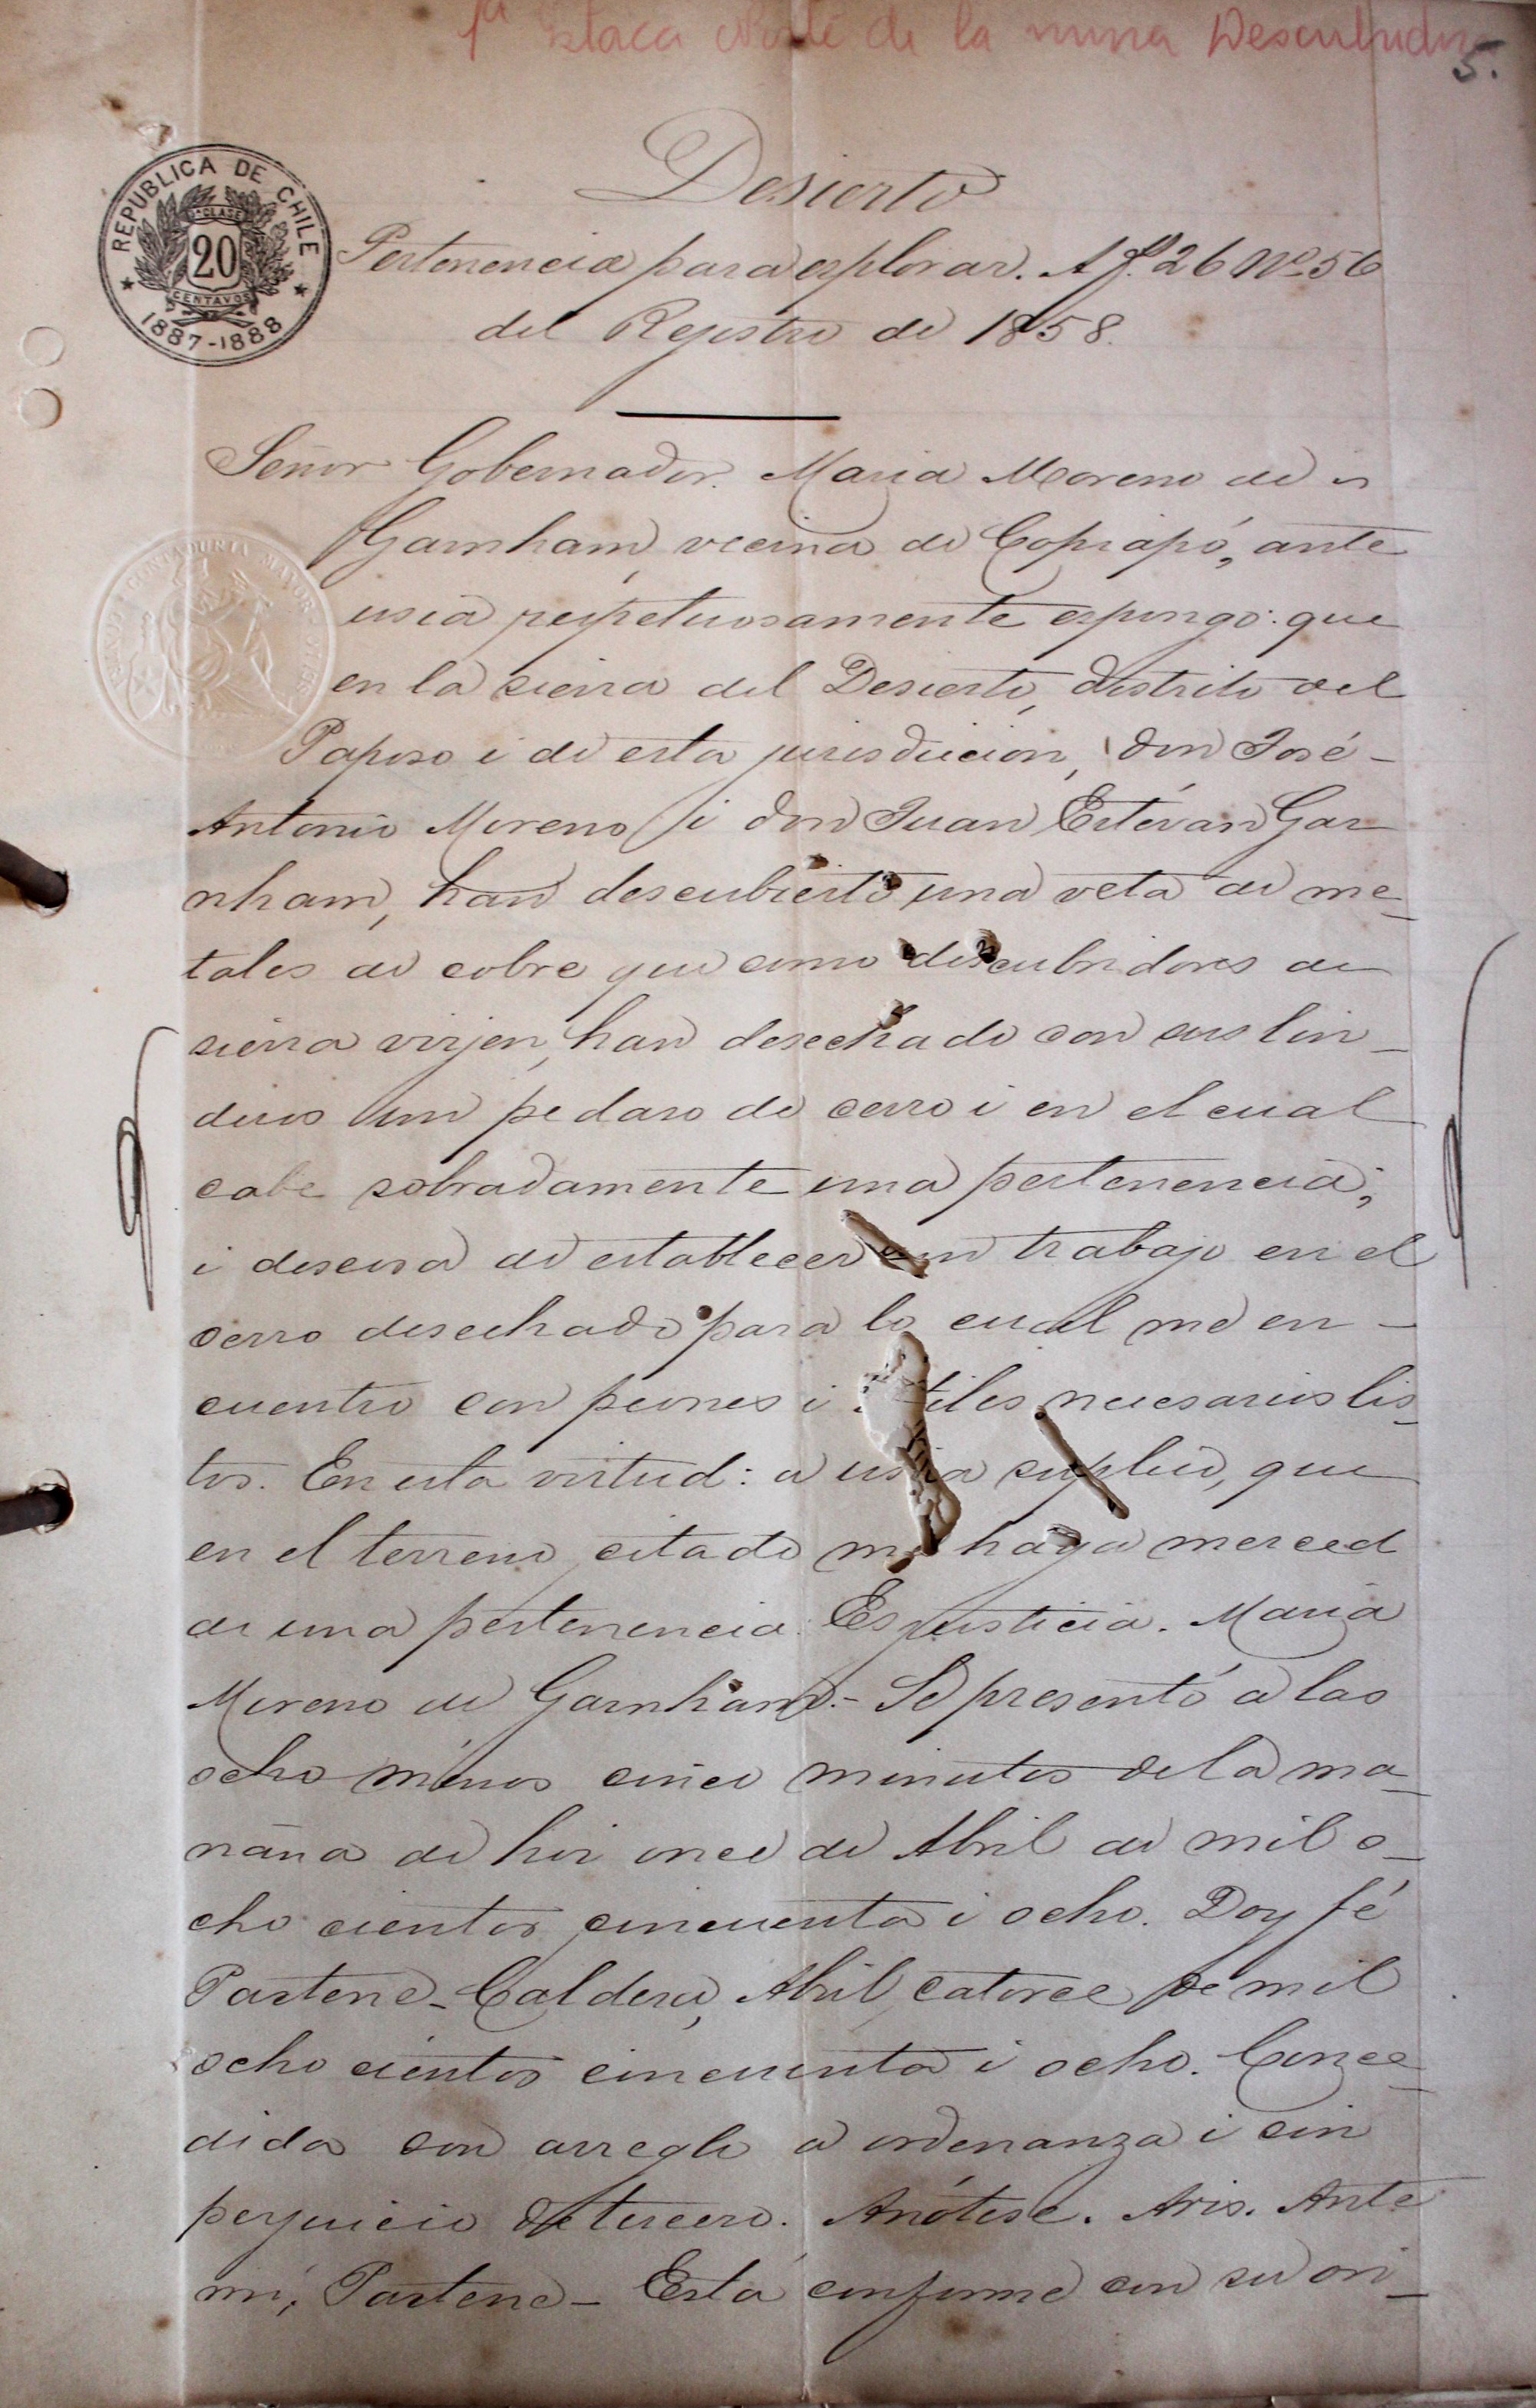 1ª estaca Norte de la mina Descubridora
5.
Desierto
REPUBLICA DE CHILE
1ª CLASE
20
CENTAVOS
1887-1888
Pertenencia para esplorar. A f. 26 Nº 56
del Rejistro de 1858.
Señor Gobernador. Maria Moreno de
Garnham, vecina de Copiapó, ante
usia respetuosamente espongo: que
en la sierra del Desierto, distrito del
Paposo i de esta jurisdiccion, don José
Antonio Moreno i don Juan Estévan Gar
nham, han descubierto una veta de me-
tales de cobre que como descubridores de
sierra virjen, han desechado con sus lin-
deros un pedaso de cerro i en el cual
cabe sobradamente una pertenencia;
i deseosa de establecer un trabajo en el
cerro desechado para lo cual me en-
cuentro con peones i útiles necesarios lis-
tos. En esta virtud: a usia suplico, que
en el terreno citado me haga merced
de una pertenencia. Es justicia. Maria
Moreno de Garnham.- Se presentó a las
ocho ménos cinco minutos de la ma-
ñana de hoi once de Abril de mil o-
cho cientos cincuenta i ocho. Doy fé
Pastene-Caldera, Abril catorce de mil
ocho cientos cincuenta i ocho. Conce-
dida con arreglo a ordenanza i sin
perjuicio de tercero. Anótese. Aris. Ante
mí, Pastene- Está conforme con su ori-